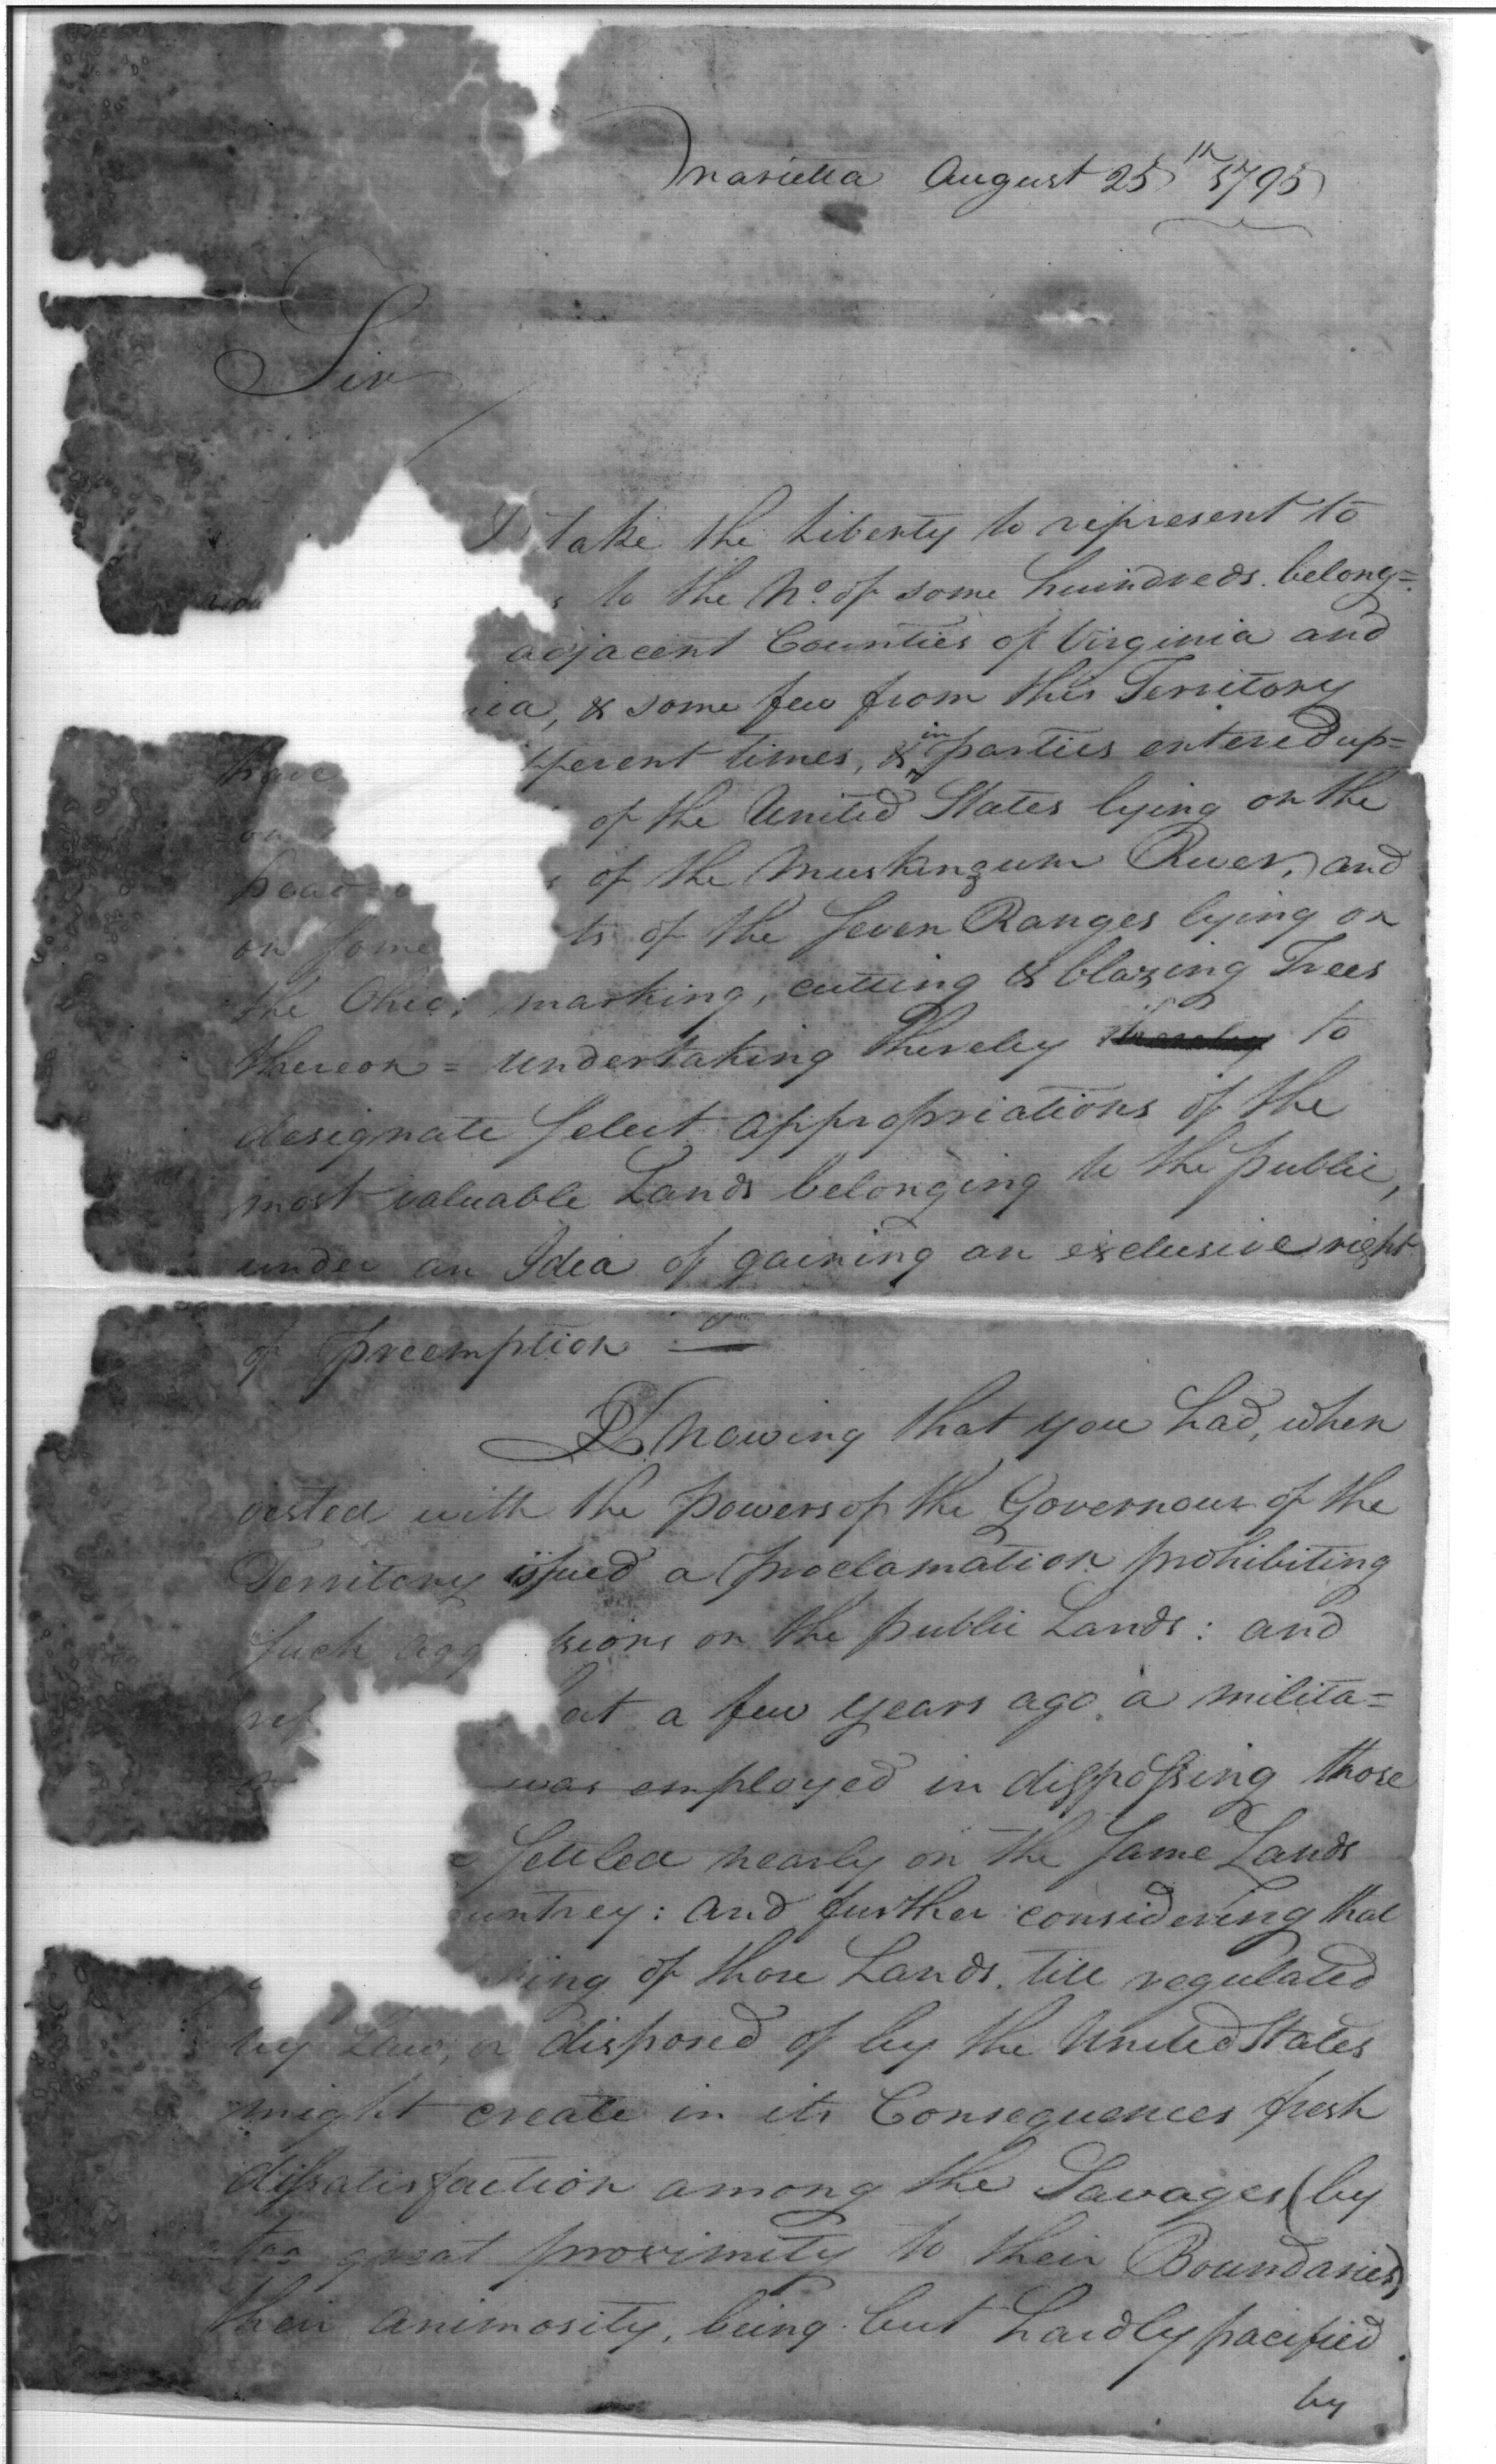 Marietta August 25th 1795
Sir
I take the Liberty to represent to
you s to the No. of some hundreds belong=
adjacent Counties of Virginia and
nia, & some few from this Territory
have fferent times, & in parties entered up=
on of the United States lying on the
head of the Muskingum River, and
on some ts of the Seven Ranges lying on
the Ohio; marking, cutting & blazing Trees
thereon = undertaking thereby thereby to
designate Select appropriations of the
most valuable Lands belonging to the public,
under an Idea of gaining an exclusive right
of preemption —
Knowing that you had, when
vested with the powers of the Governour of the
Territory issued a proclamation prohibiting
such agg ssions on the public Lands: and
ref at a few years ago a milita=
was employed in disspossing those
e settled nearly on the same Lands
untrey: and further considering that
ing of those Lands, till regulated
by Law, or disposed of by the United States
might create in its Consequences fresh
dissatisfaction among the Savages (by
too great proximity to their Boundaries)
their animosity, being but hardly pacified
by